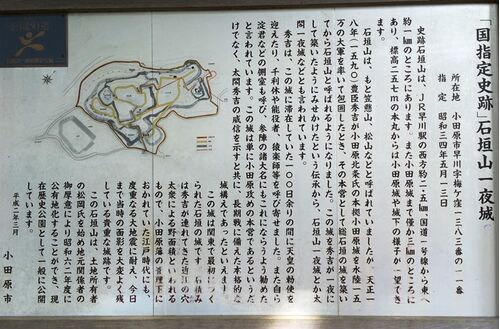 「国指定史跡」石垣山一夜城
所在地　小田原市早川字梅ケ窪一三八三番の一一番
指定　昭和三四年五月一三日
史跡石垣山は、JR早川駅の西方約二・五㎞国道一号線から東へ
約一㎞のところにあります。また小田原城まで僅か三㎞のところに
あり、標高二五七mの本丸からは小田原城や城下の様子が一望でき
ます。
石垣山は、もと笠懸山、松山などと呼ばれていましたが、天正一
八年（一五九〇）豊臣秀吉が小田原北条氏の本拠小田原城を水陸一五
万の大軍を率いて包囲したとき、その本営として総石垣の城を築い
てから石垣山と呼ばれるようになりました。この城を秀吉が一夜に
して築いたようにみせかけたという伝承から、石垣山一夜城とか太
閤一夜城などとも言われています。
秀吉は、この城に滞在していた一〇〇日余りの間に天皇の勅使を
迎えたり、千利休や能役者、猿楽師等を呼び寄せました。また自ら
淀君などの側室も呼び、参陣の諸大名にもこれにならうよう勧めた
と言われています。この城は単に小田原攻めの本営であるというだ
けでなく、太閤秀吉の威信を示すと共に、長期戦に備えた本格的な
城構えであったといえます。
この城は関東で最初につく
られた石垣の城です。石積み
は秀吉が連れてきた近江の穴
太衆による野面積といわれる
もので、小田原藩の管理下に
おかれていた江戸時代にも、
度重なる大地震に耐え、今日
まで当時の面影を大変よく残
している貴重な城跡です。
この石垣山は、土地所有者
の松岡氏を始め地元関係者の
御厚意により昭和六二年度に
公有地化することができ、現
在歴史公園として一般に公開
しています。
平成二年三月
小田原市